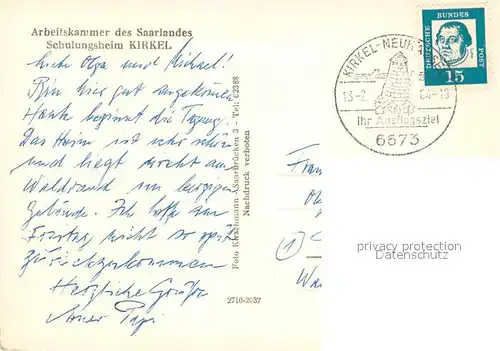 Arbeitskammer des Saarlandes
Schulungsheim KIRKEL
Liebe Olga und Michael!
Bin hier gut angekommen
Heute beginnt die Tagung.
Das Heim ist sehr schön
und liegt direkt am
Waldrand im bergigen
Gelände. Ich hoffe am
Freitag nicht so spät
zurückzukommen
Herzliche Grüße
Euer Papi
Foto Kirschmann, Saarbrücken 3 - Tel: 62388
Nachdruck verboten
2710-2037
KIRKEL-NEUH
13-2
64-19
Ihr Ausflugsziel
6673
DEUTSCHE BUNDES POST
15
Fra
1
privacy protection
Datenschutz